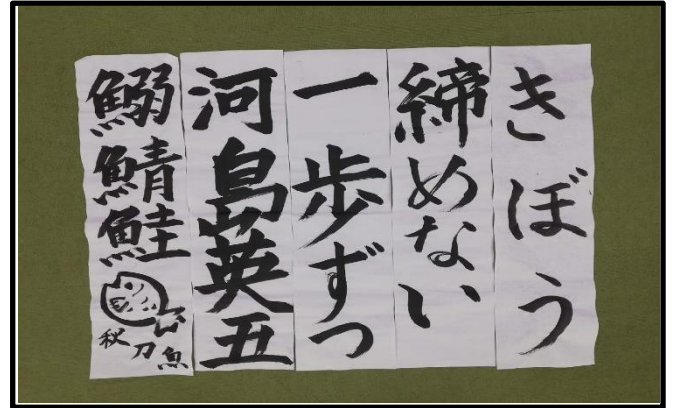 きぼう
締めない
一歩ずつ
河島英五
鰯鯖鮭
秋刀魚